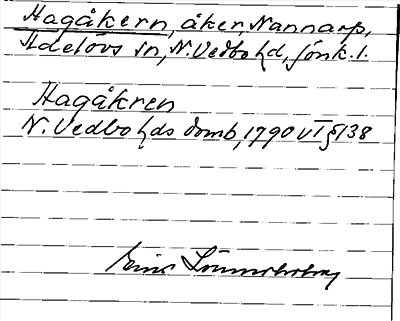 Hagåkern, åker, Nannarp,
Adelövs sn, N. Vedbo hd, Jönk. l.
Hagåkren
N. Vedbo hds domb, 1790 VT § 138
Erik